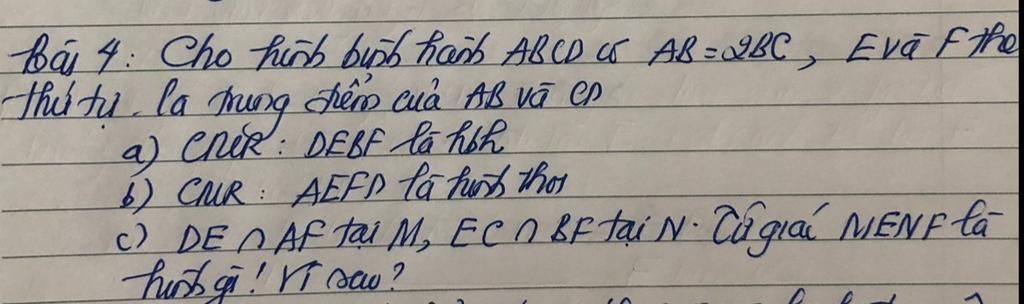 Bài 4: Cho hình bình hành ABCD có AB = 2BC, E và F the
thứ tự là trung điểm của AB và CD
a) CMR: DEBF là hbh
b) CMR: AEFD là hình thoi
c) DE ∩ AF tại M, EC ∩ BF tại N. Tứ giác MENF là
hình gì! Vì sao?